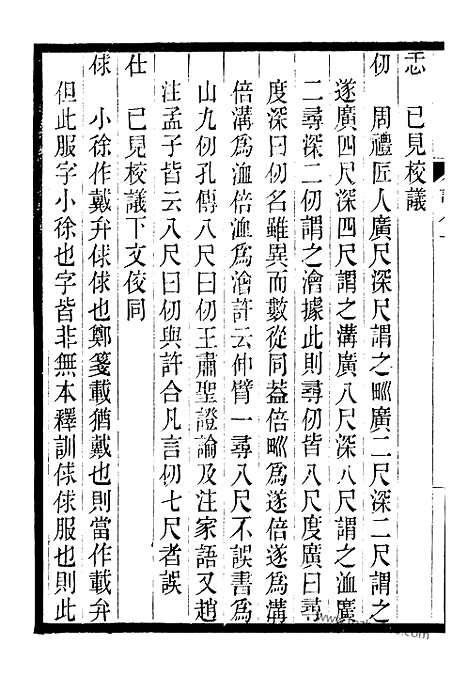 恭 已見校議
仞 周禮匠人廣尺深尺謂之𤰕廣二尺深二尺謂之
遂廣四尺深四尺謂之溝廣八尺深八尺謂之洫廣
二尋深二仞謂之澮據此則尋仞皆八尺度廣曰尋
度深曰仞名雖異而數從同葢倍𤰕爲遂倍遂爲溝
倍溝爲洫倍洫爲澮許云伸臂一尋八尺不誤書爲
山九仞孔傳八尺曰仞王肅聖證論及注家語又趙
注孟子皆云八尺曰仞與許合凡言仞七尺者誤
仕 已見校議下文佼同
俅 小徐作戴弁俅俅也鄭箋載猶戴也則當作載弁
但此服字小徐也字皆非無本釋訓俅俅服也則此